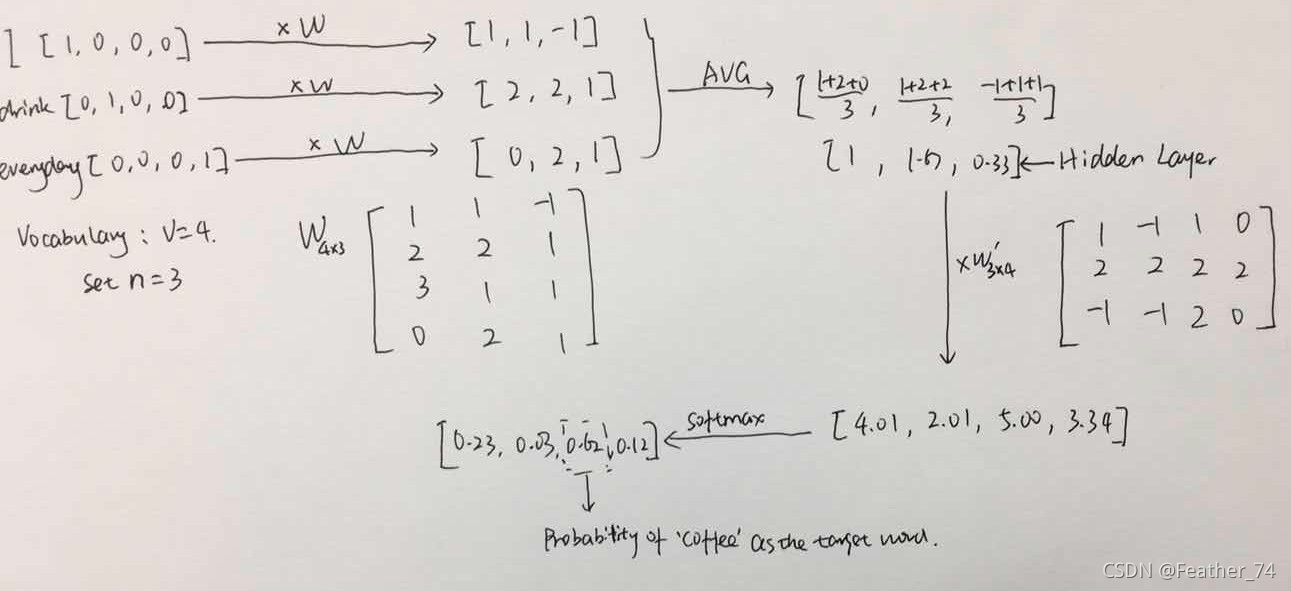 I [1, 0, 0, 0] ×W [1, 1, -1]
drink [0, 1, 0, 0] ×W [2, 2, 1]
everyday [0, 0, 0, 1] ×W [0, 2, 1]
AVG [1+2+0/3, 1+2+2/3, -1+1+1/3]
[1, 1.67, 0.33] ← Hidden Layer
Vocabulary: V=4.
set n=3
W4×3
1 1 -1
2 2 1
3 1 1
0 2 1
×W'3×4
1 -1 1 0
2 2 2 2
-1 -1 2 0
[4.01, 2.01, 5.00, 3.34]
softmax
[0.23, 0.03, 0.62, 0.12]
Probability of 'coffee' as the target word.
CSDN @Feather_74